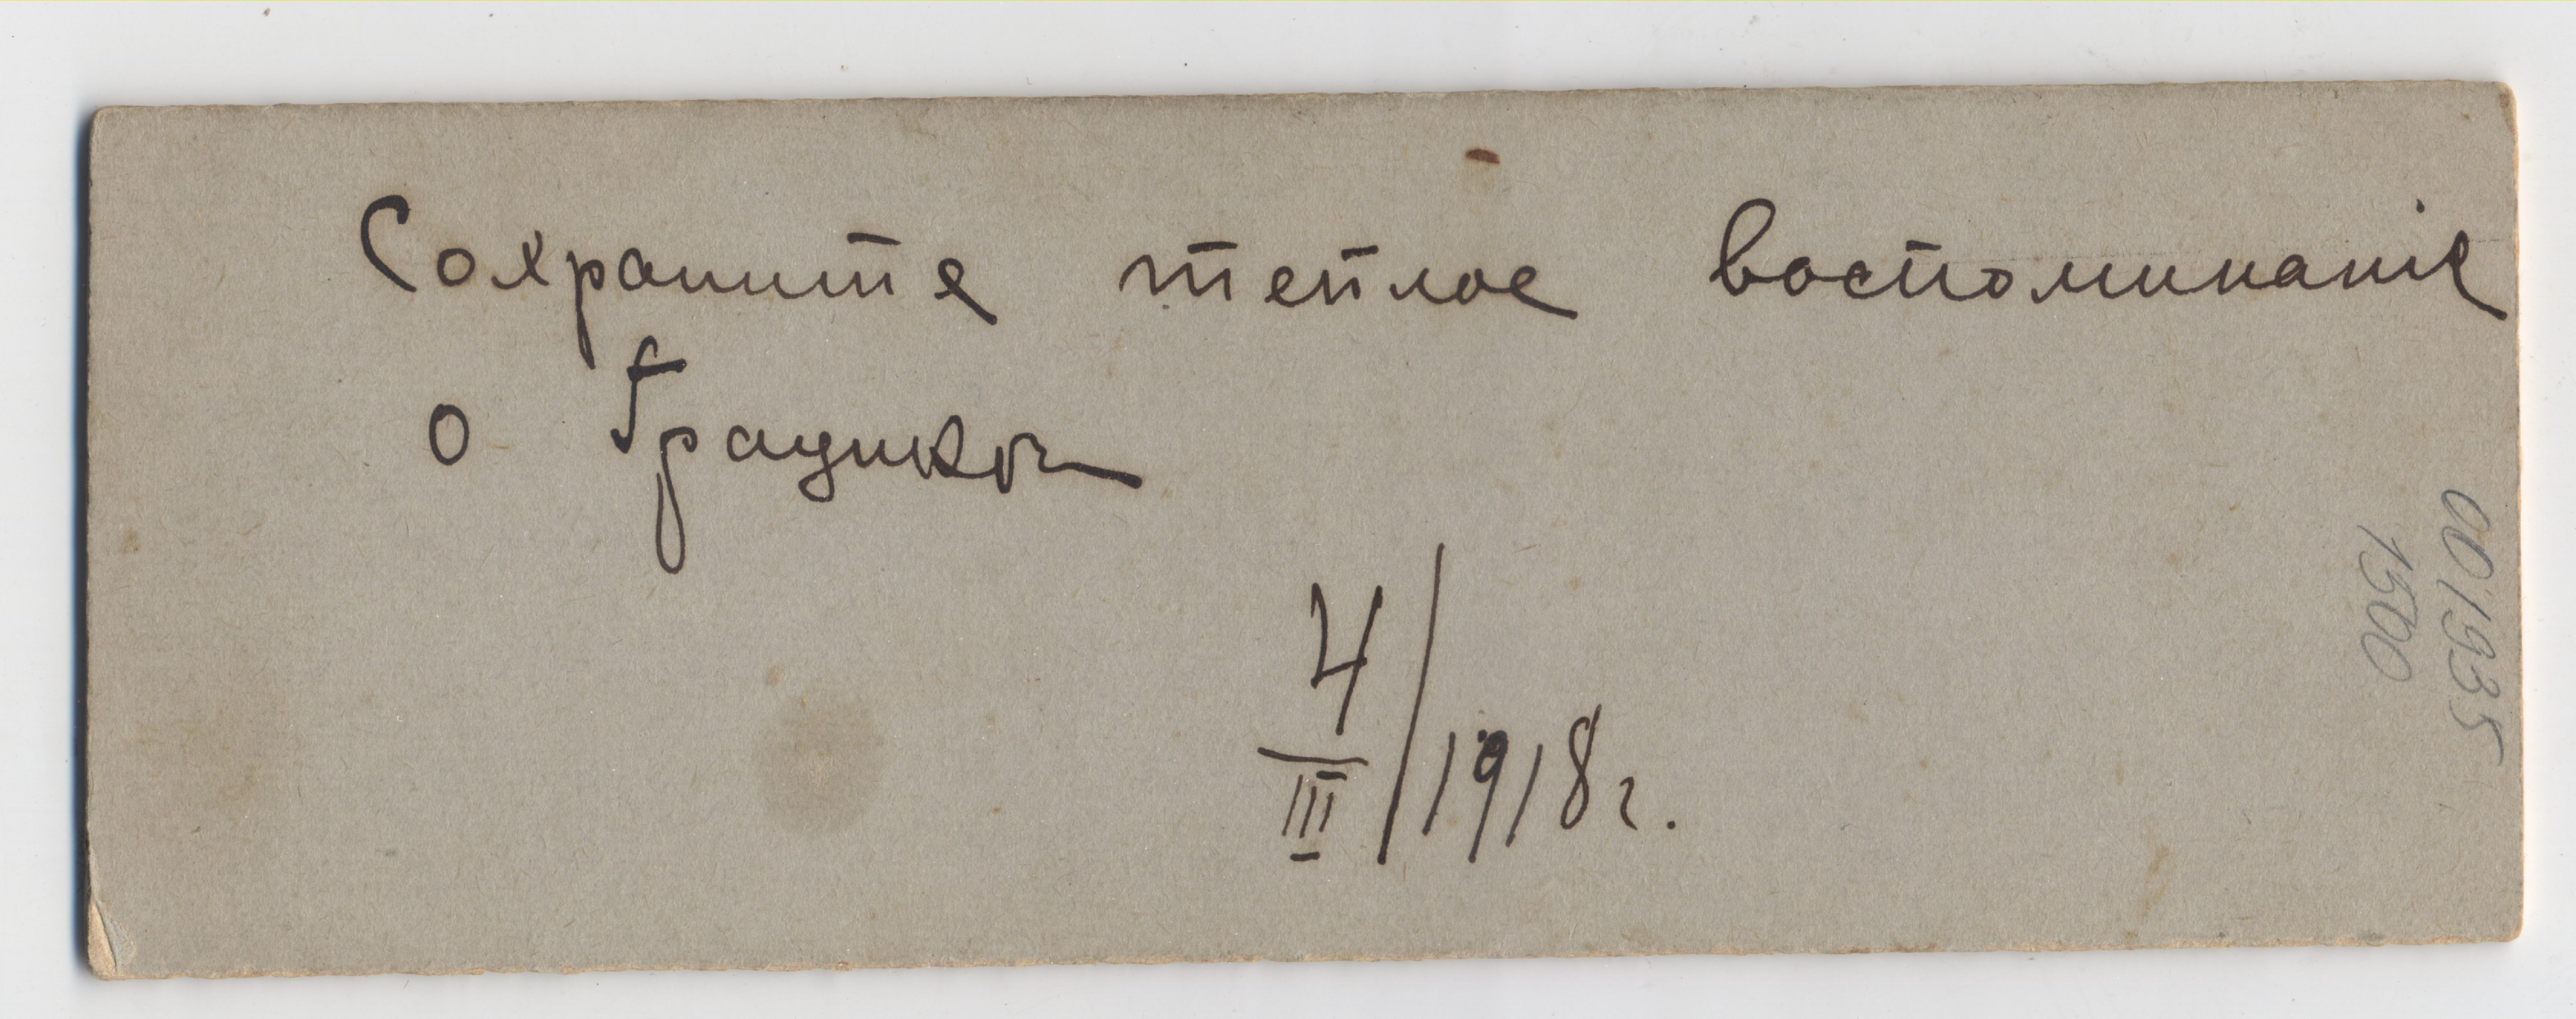 Сохраните теплое воспоминаніе
о
4/III/1918г.
001935
1500